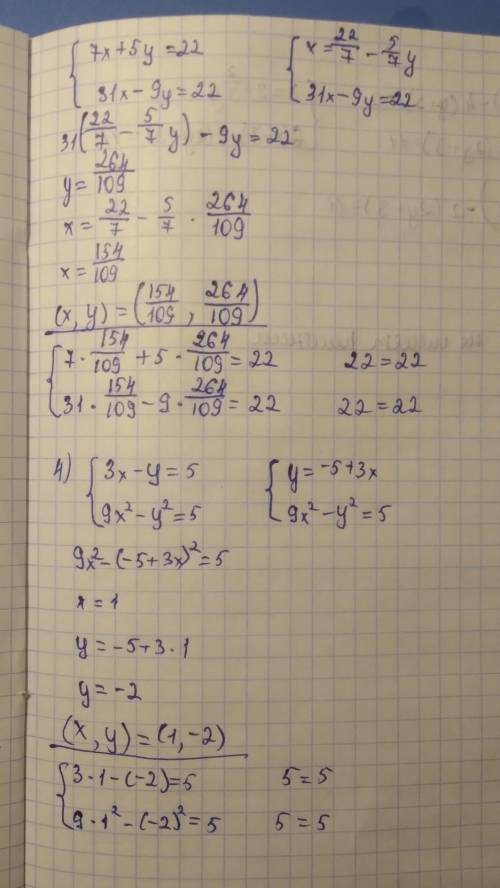 { 7x+5y=22   { x=22/7 - 5/7 y
{ 31x-9y=22   { 31x-9y=22
31(22/7 - 5/7 y) - 9y = 22
y= 264/109
x= 22/7 - 5/7 · 264/109
x= 154/109
(x, y) = (154/109 , 264/109)
{ 7 · 154/109 + 5 · 264/109 = 22   22=22
{ 31 · 154/109 - 9 · 264/109 = 22   22=22
4) { 3x-y=5   { y=-5+3x
{ 9x²-y²=5   { 9x²-y²=5
9x²-(-5+3x)²=5
x=1
y=-5+3·1
y=-2
(x, y) = (1, -2)
{ 3·1-(-2)=5   5=5
{ 9·1²-(-2)²=5   5=5